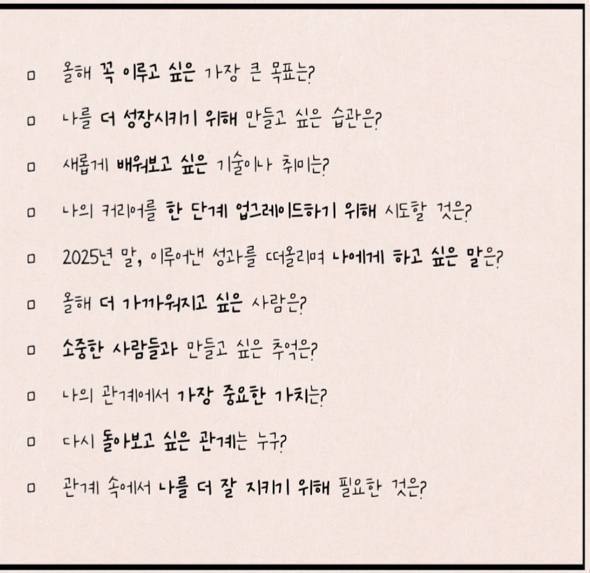 올해 꼭 이루고 싶은 가장 큰 목표는?
나를 더 성장시키기 위해 만들고 싶은 습관은?
새롭게 배워보고 싶은 기술이나 취미는?
나의 커리어를 한 단계 업그레이드하기 위해 시도할 것은?
2025년 말, 이루어낸 성과를 떠올리며 나에게 하고 싶은 말은?
올해 더 가까워지고 싶은 사람은?
소중한 사람들과 만들고 싶은 추억은?
나의 관계에서 가장 중요한 가치는?
다시 돌아보고 싶은 관계는 누구?
관계 속에서 나를 더 잘 지키기 위해 필요한 것은?